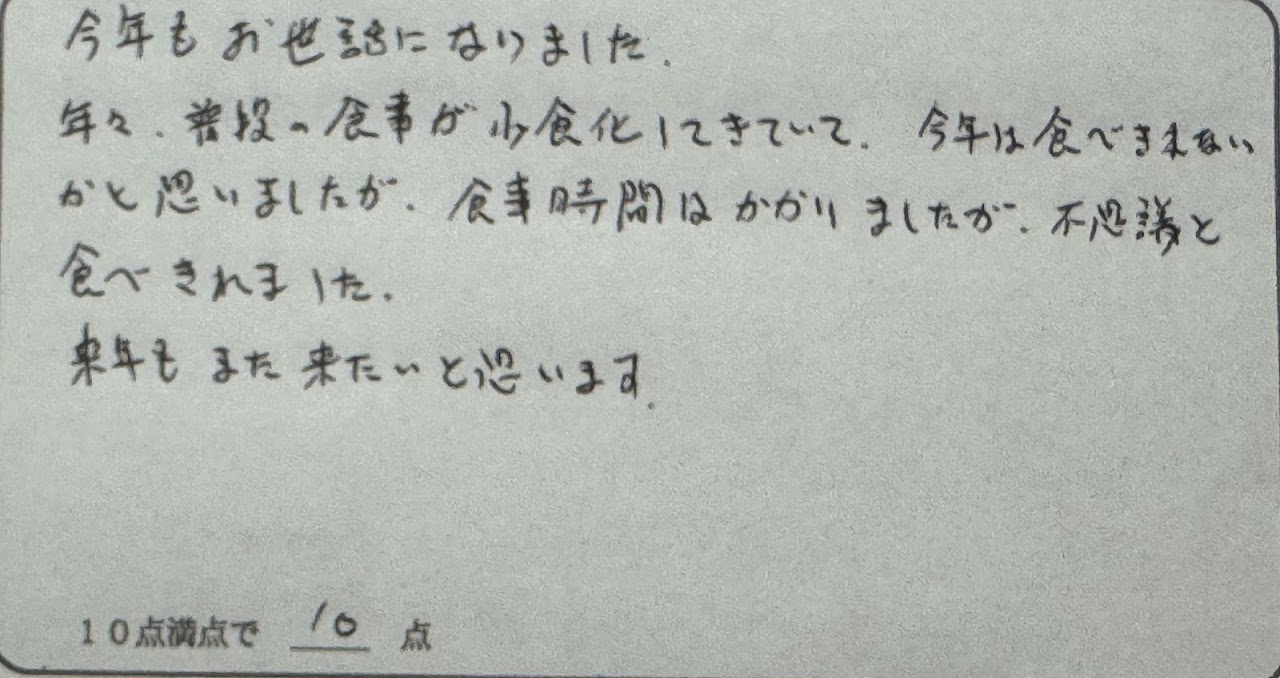 今年もお世話になりました.
年々、普段の食事が少食化してきていて、今年は食べきれない
かと思いましたが、食事時間はかかりましたが、不思議と
食べきれました.
来年もまた来たいと思います.
10点満点で 10 点